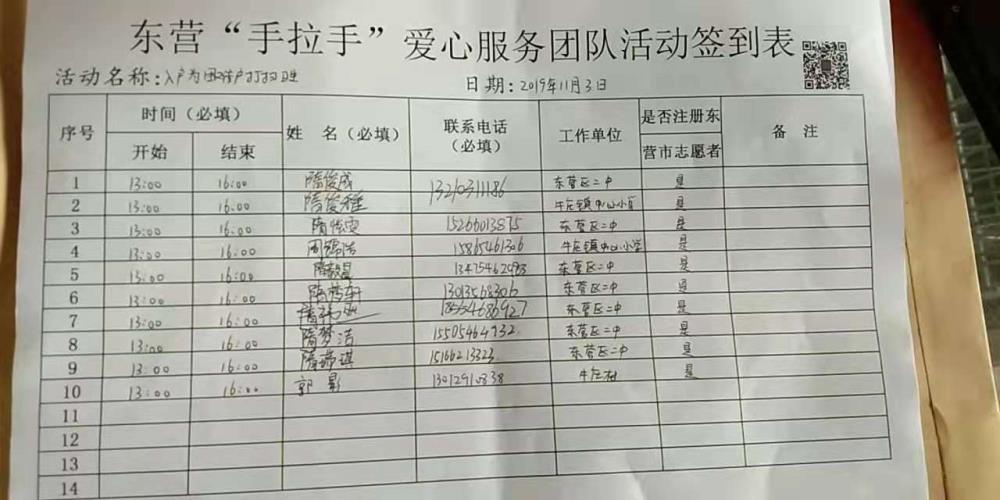 东营“手拉手”爱心服务团队活动签到表
活动名称：入户为困难户打扫卫生 日期：2019年11月3日
序号 时间（必填） 姓 名（必填） 联系电话（必填） 工作单位 是否注册东营市志愿者 备 注
开始 结束
1 13:00 16:00 隋俊成 13210311186 东营区二中 是
2 13:00 16:00 隋俊雅 牛庄镇中心小学 是
3 13:00 16:00 15266013875 东营区二中 是
4 13:00 16:00 周锦浩 15865461306 牛庄镇中心小学 是
5 13:00 16:00 东营区二中 是
6 13:00 16:00 13013568306 东营区二中 是
7 13:00 16:00 是
8 13:00 16:00 隋梦洁 15505464932 东营区二中 是
9 13:00 16:00 15166213323 东营区二中 是
10 13:00 16:00 13012910338 牛庄村 是
11
12
13
14